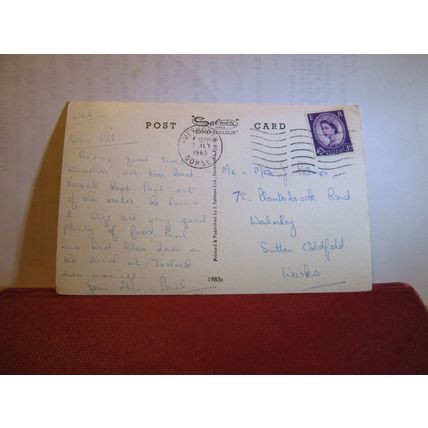 Wed
POST CARD
Salmon
CAMERACOLOUR
Dear All
Having good time
weather not too bad
hasnt kept Paul out
of the water, he loves
it. Digs are very good
plenty of food. Paul
Jean and Alan down on
the beach at
this morning
Jean Alan & Paul
WEYMOUTH
7 JLY
1965
DORSET
Printed & Published by J. Salmon Ltd., Sevenoaks
1983c
E R
Mr & Mrs J
70 Plantsbrook Road
Walmley
Sutton Coldfield
Warks